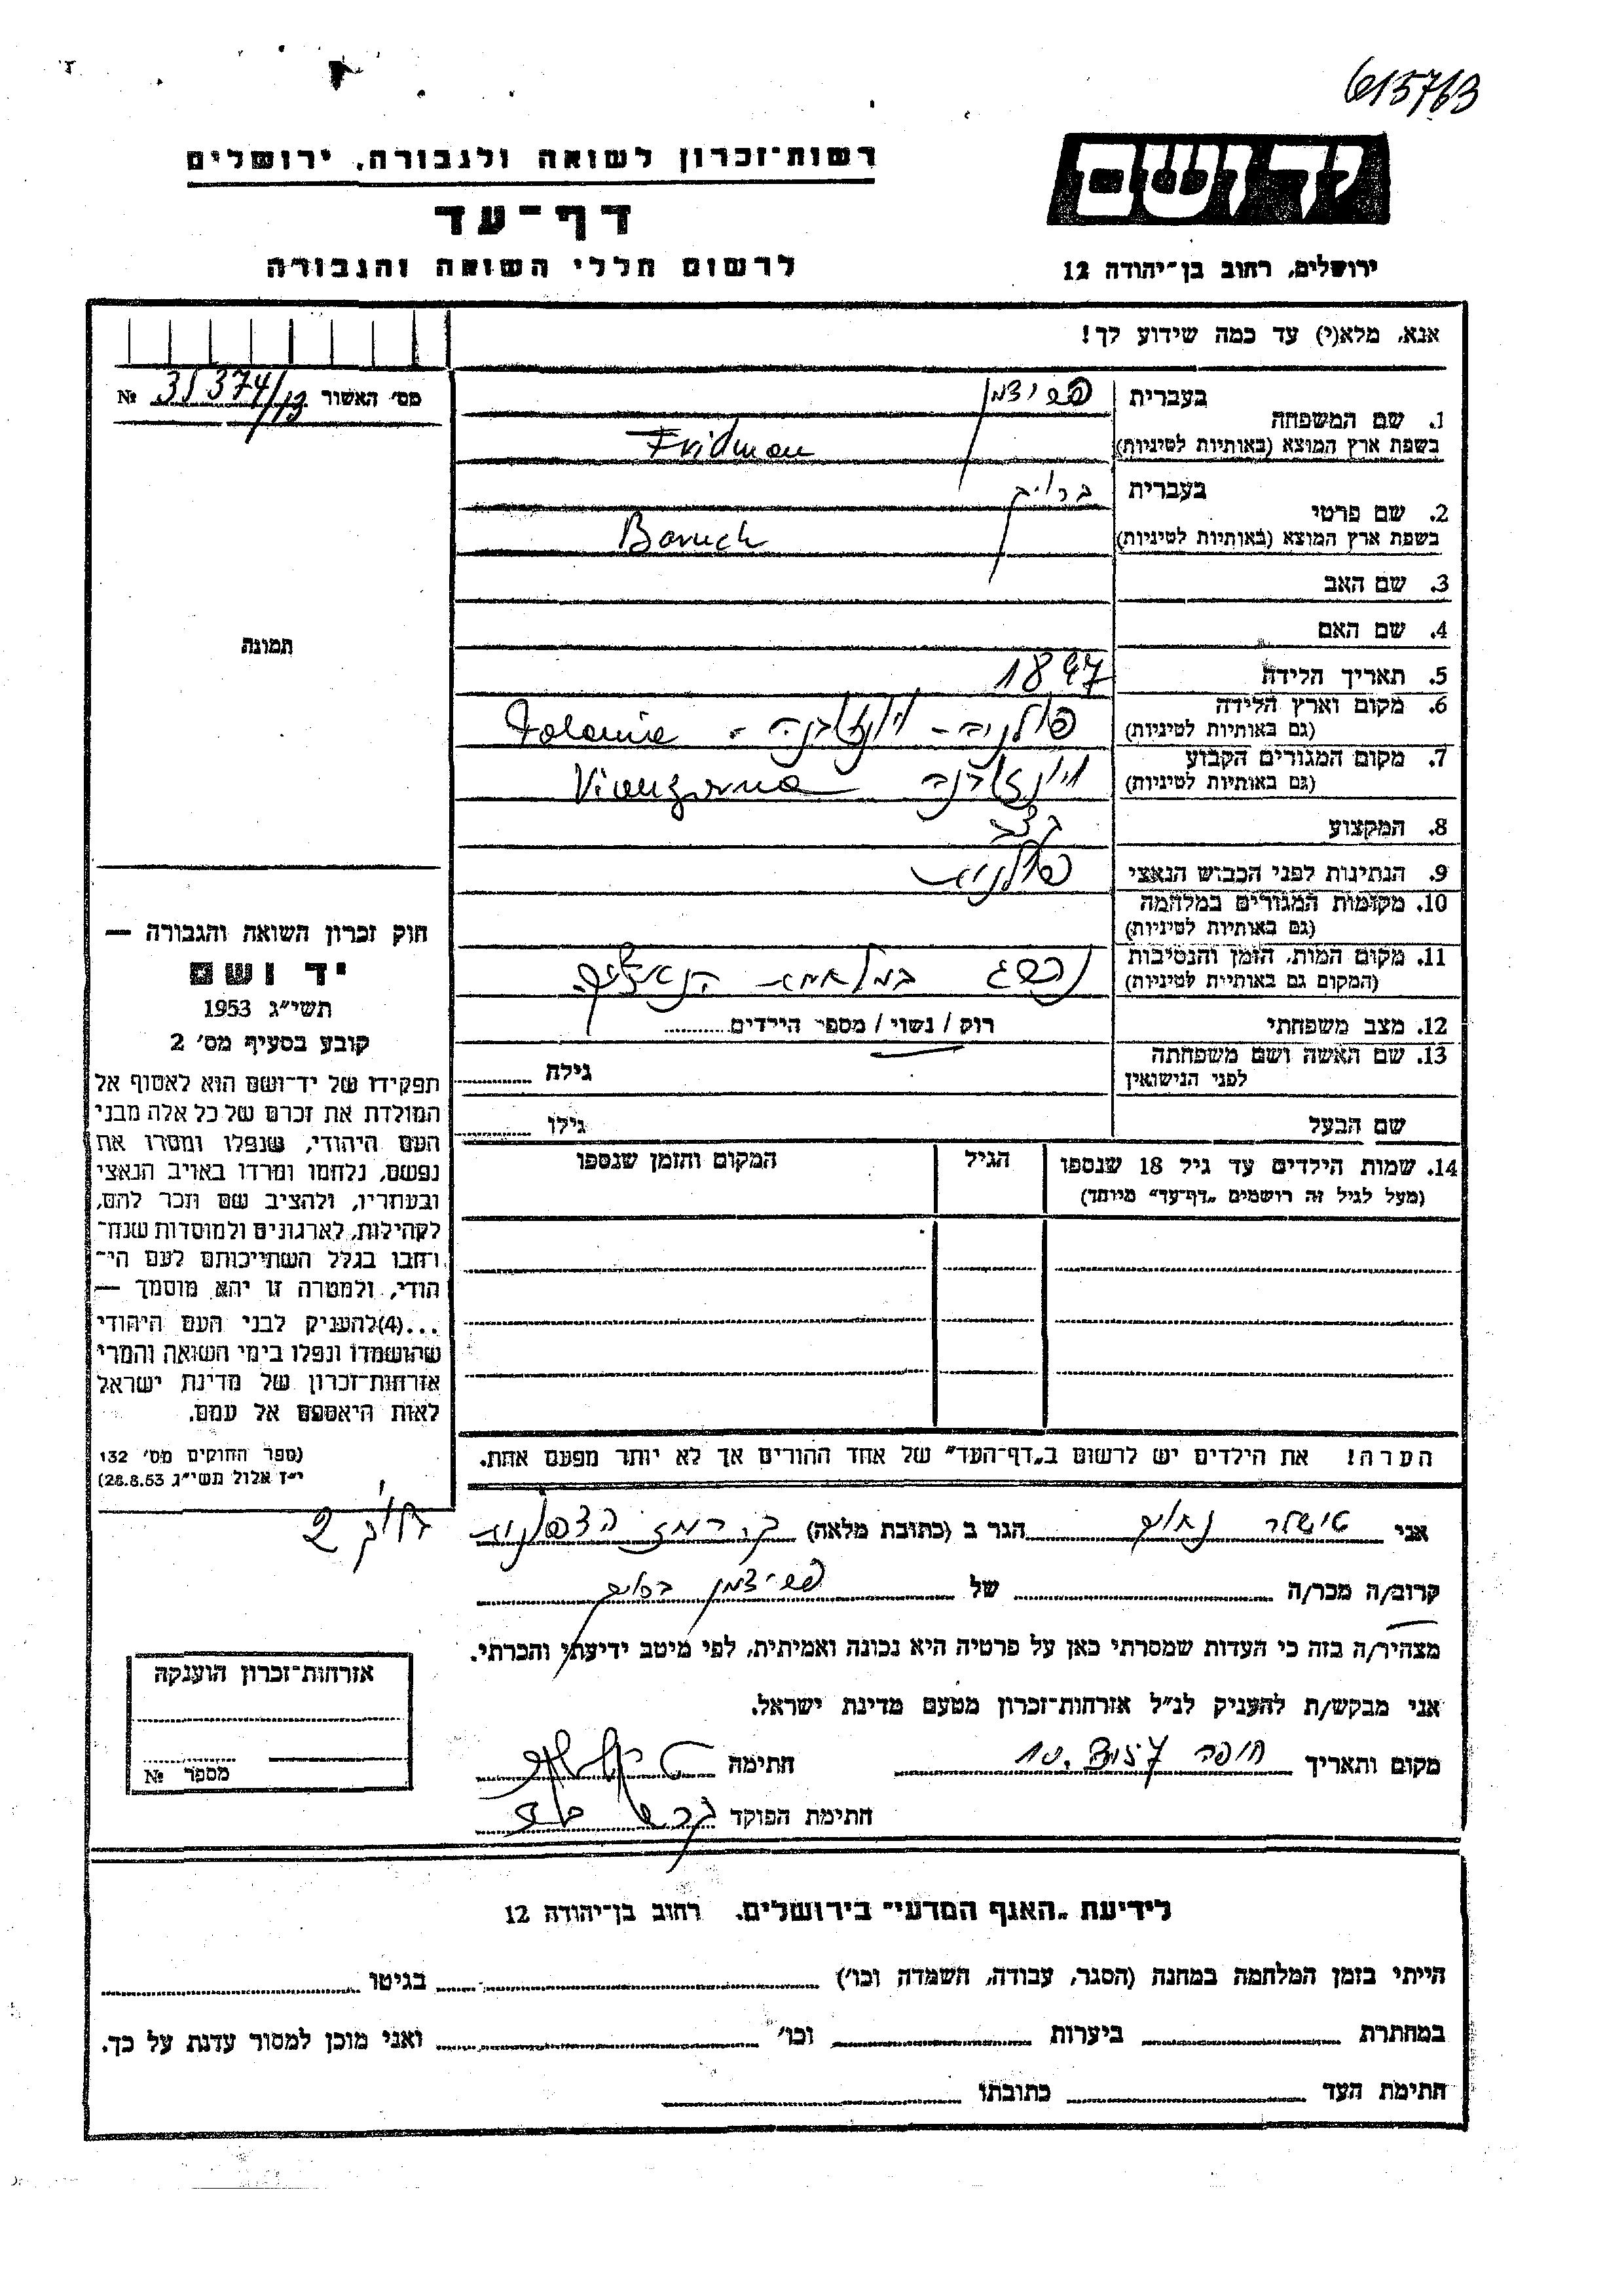 615763
יד ושם
רשות־זכרון לשואה ולגבורה, ירושלים
דף־עד
לרשום חללי השואה והגבורה
ירושלים, רחוב בן־יהודה 12
אנא, מלא(י) עד כמה שידוע לך!
מס׳ האשור 31374/13 №
1. שם המשפחה
בעברית פרידמן
בשפת ארץ המוצא (באותיות לטיניות) Fridman
2. שם פרטי
בעברית ברוך
בשפת ארץ המוצא (באותיות לטיניות) Baruch
3. שם האב
4. שם האם
5. תאריך הלידה 1897
6. מקום וארץ הלידה
(גם באותיות לטיניות) פולניה -
7. מקום המגורים הקבוע
(גם באותיות לטיניות)
8. המקצוע
9. הנתינות לפני הכבוש הנאצי פולנית
10. מקומות המגורים במלחמה
(גם באותיות לטיניות)
11. מקום המות, הזמן והנסיבות
(המקום גם באותיית לטיניות) במלחמת
12. מצב משפחתי רוק / נשוי / מספר הילדים
13. שם האשה ושם משפחתה
לפני הנישואין גילה
שם הבעל גילו
14. שמות הילדים עד גיל 18 שנספו
(מעל לגיל זה רושמים „דף־עד״ מיוחד)
הגיל
המקום והזמן שנספו
הערה! את הילדים יש לרשום ב„דף־העד״ של אחד ההורים אך לא יותר מפעם אחת.
תמונה
חוק זכרון השואה והגבורה —
יד ושם
תשי״ג 1953
קובע בסעיף מס׳ 2
תפקידו של יד־ושם הוא לאסוף אל
המולדת את זכרם של כל אלה מבני
העם היהודי, שנפלו ומסרו את
נפשם, נלחמו ומרדו באויב הנאצי
ובעוזריו, ולהציב שם וזכר להם,
לקהילות, לארגונים ולמוסדות שנח־
רחבו בגלל השתייכותם לעם הי־
הודי, ולמטרה זו יהא מוסמך —
...(4)להעניק לבני העם היהודי
שהושמדו ונפלו בימי השואה והמרי
אזרחות־זכרון של מדינת ישראל
לאות היאספם אל עמם.
(ספר החוקים מס׳ 132
י״ז אלול תשי״ג 28.8.53)
אני טישלר נחום הגר ב (כתובת מלאה)
קרוב/ה מכר/ה של פרידמן ברוך
מצהיר/ה בזה כי העדות שמסרתי כאן על פרטיה היא נכונה ואמיתית, לפי מיטב ידיעתי והכרתי.
אני מבקש/ת להעניק לנ״ל אזרחות־זכרון מטעם מדינת ישראל.
מקום ותאריך חיפה חתימה
חתימת הפוקד
אזרחות־זכרון הוענקה
מספר №
לידיעת „האגף המדעי״ בירושלים, רחוב בן־יהודה 12
הייתי בזמן המלחמה במחנה (הסגר, עבודה, השמדה וכו׳) בגיטו
במחתרת ביערות וכו׳ ואני מוכן למסור עדות על כך.
חתימת העד כתובתו